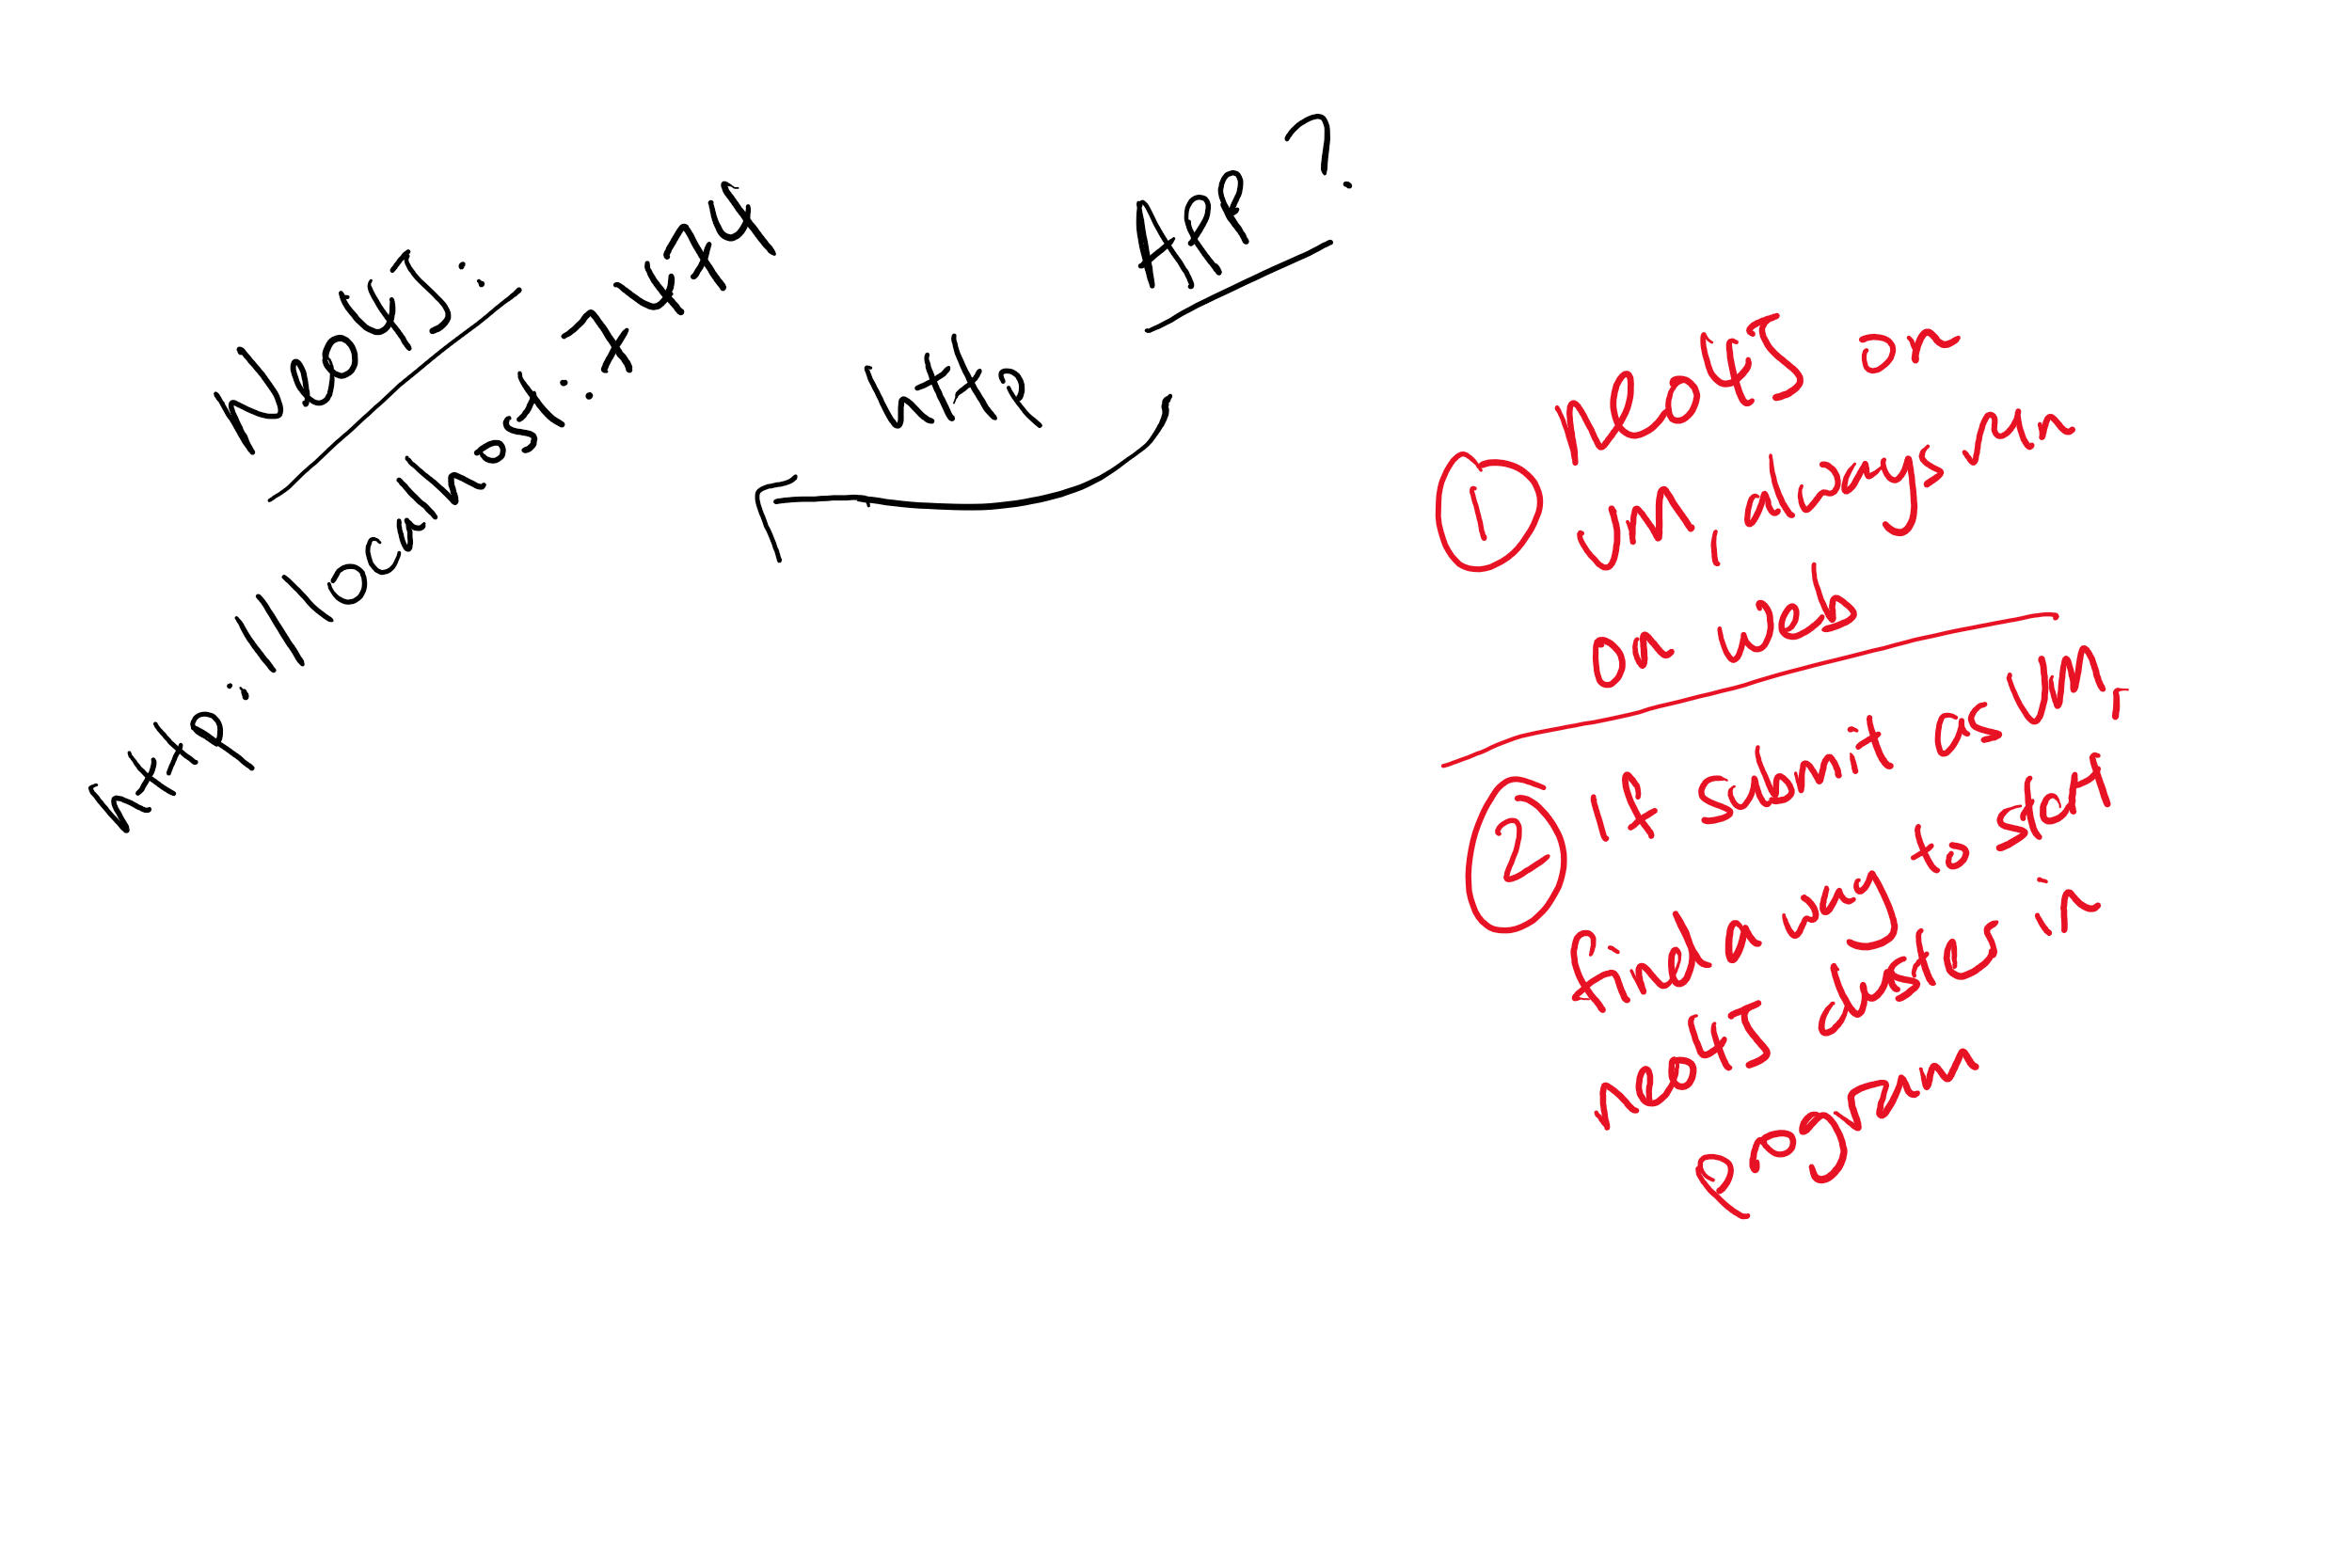 Neo4J:
http://localhost:7474
APP?
http
① neo4J on
VM, always run
on web
② If submit as VM,
find a way to start
neo4J cluster in
program